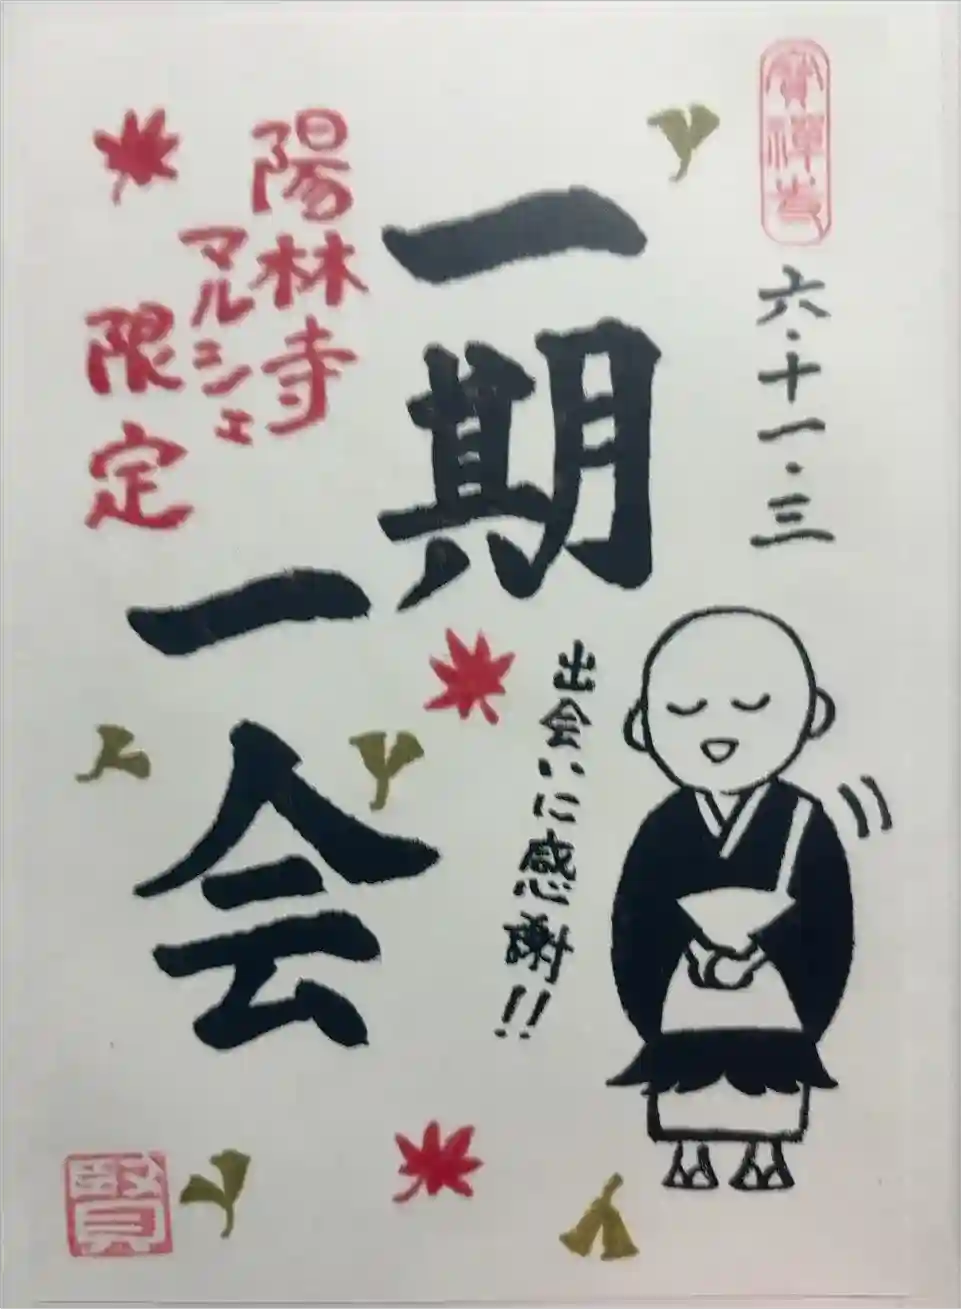 六・十一・三
一期
一会
出会いに感謝!!
陽林寺
マルシェ
限定
賢